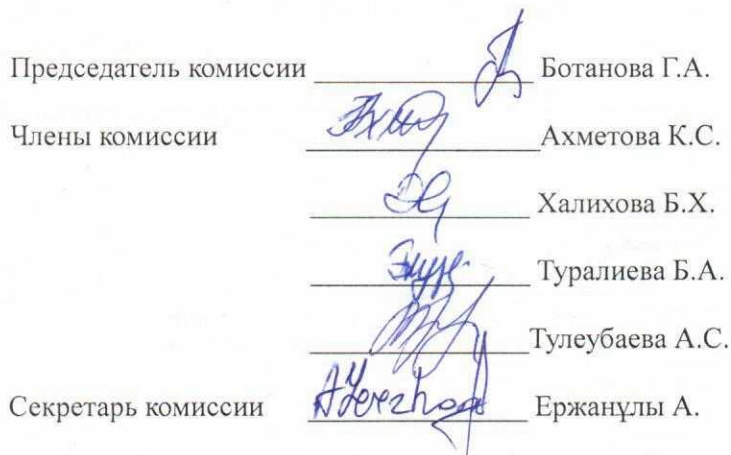 Председатель комиссии Ботанова Г.А.
Члены комиссии Ахметова К.С.
Халихова Б.Х.
Туралиева Б.А.
Тулеубаева А.С.
Секретарь комиссии Ержанұлы А.